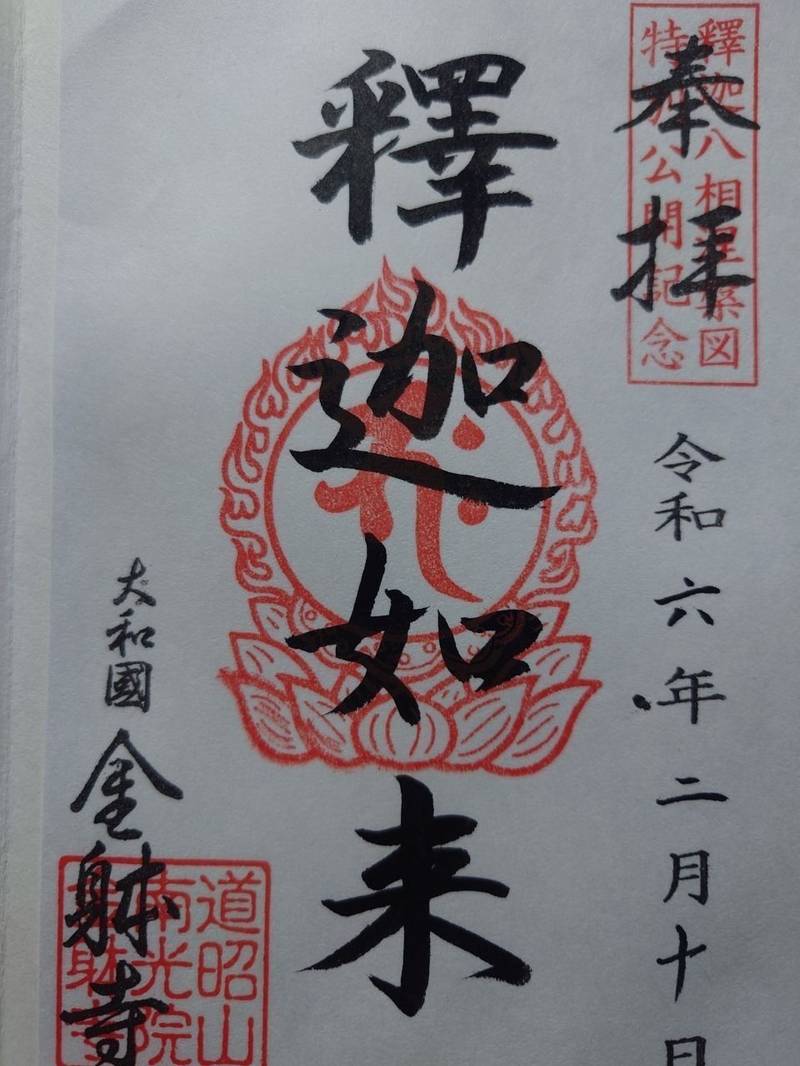 奉拝
釋迦八相涅槃図
特別公開記念
令和六年二月十日
釋迦如来
大和國 金躰寺
道昭山
南光院
金躰寺